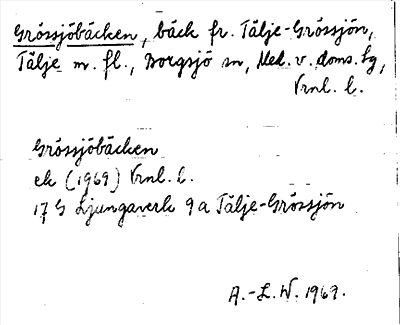 Grössjöbäcken, bäck fr. Tälje-Grössjön,
Tälje m. fl., Borgsjö sn, Med. v. doms. tg,
Vrnl. l.
Grössjöbäcken
ek (1969) Vrnl. l.
17 G Ljungaverk 9 a Tälje-Grössjön
A.-L. W. 1969.